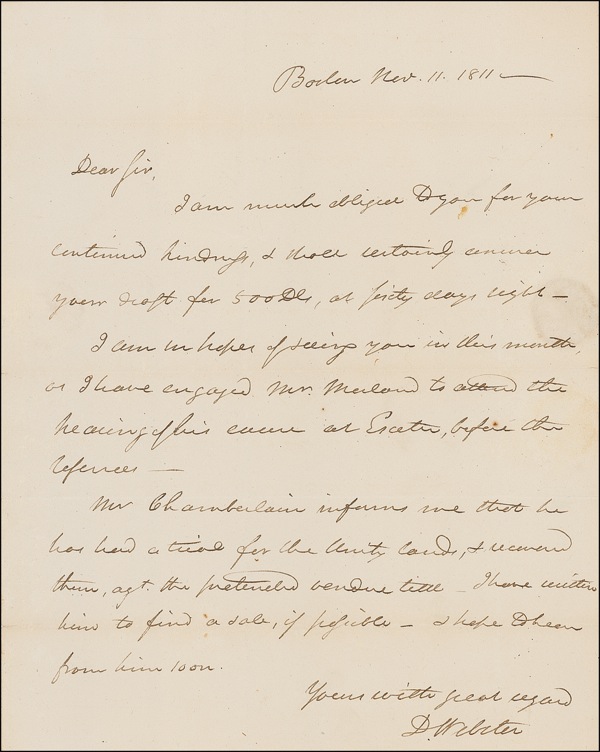 Boston Nov. 11. 1811 —
Dear Sir,
I am much obliged to you for your
continued kindness, & shall certainly answer
your draft for 500 Dls, at sixty days sight —
I am in hopes of seeing you in this month,
as I have engaged Mr. to attend the
hearing of his cause at Exeter, before the
referees —
Mr Chamberlain informs me that he
has had a trial for the Unity lands, & recovered
them, agt. the pretended vendue title — I have written
him to find a sale, if possible — I hope to hear
from him soon.
Yours with great regard
D. Webster